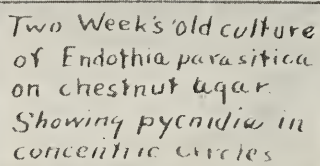 Two Week's old culture
of Endothia parasitica
on chestnut agar.
Showing pycnidia in
concentric circles